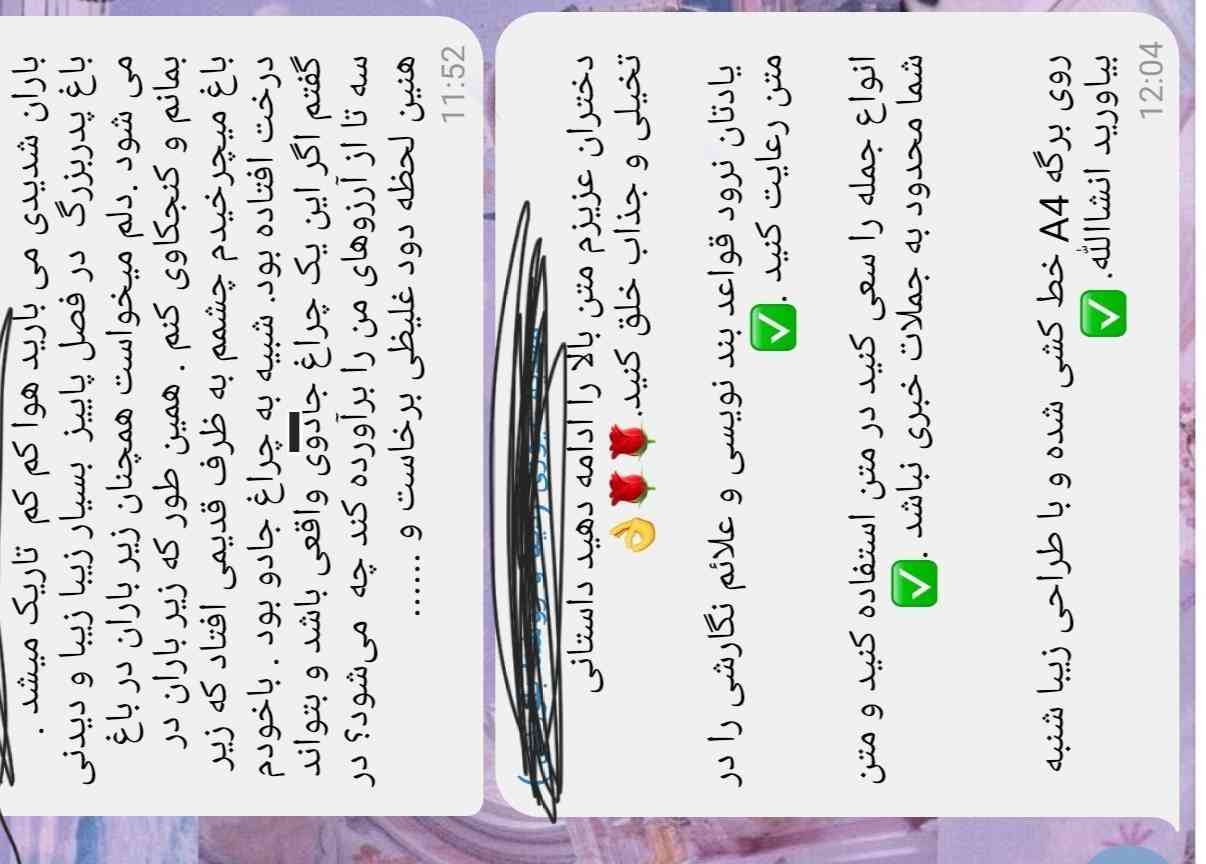 باران شدیدی می بارید هوا کم کم تاریک میشد .
باغ پدربزرگ در فصل پاییز بسیار زیبا زیبا و دیدنی
می شود .دلم میخواست همچنان زیر باران در باغ
بمانم و کنجکاوی کنم . همین طور که زیر باران در
باغ میچرخیدم چشمم به ظرف قدیمی افتاد که زیر
درخت افتاده بود. شبیه به چراغ جادو بود . باخودم
گفتم اگر این یک چراغ جادوی واقعی باشد و بتواند
سه تا از آرزوهای من را برآورده کند چه می‌شود؟ در
هنین لحظه دود غلیظی برخاست و ......
11:52
دختران عزیزم متن بالا را ادامه دهید داستانی
تخیلی و جذاب خلق کنید.🌹🌹👌
یادتان نرود قواعد بند نویسی و علائم نگارشی را در
متن رعایت کنید .✅
انواع جمله را سعی کنید در متن استفاده کنید و متن
شما محدود به جملات خبری نباشد .✅
روی برگه A4 خط کشی شده و با طراحی زیبا شنبه
بیاورید انشاالله.✅
12:04